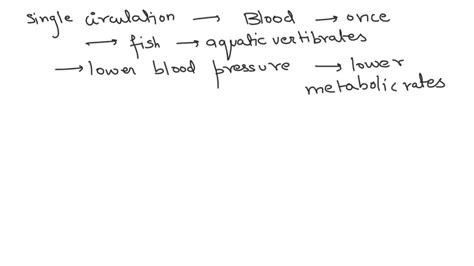 single circulation → Blood → once
→ fish → aquatic vertibrates
→ lower blood pressure → lower
metabolic rates